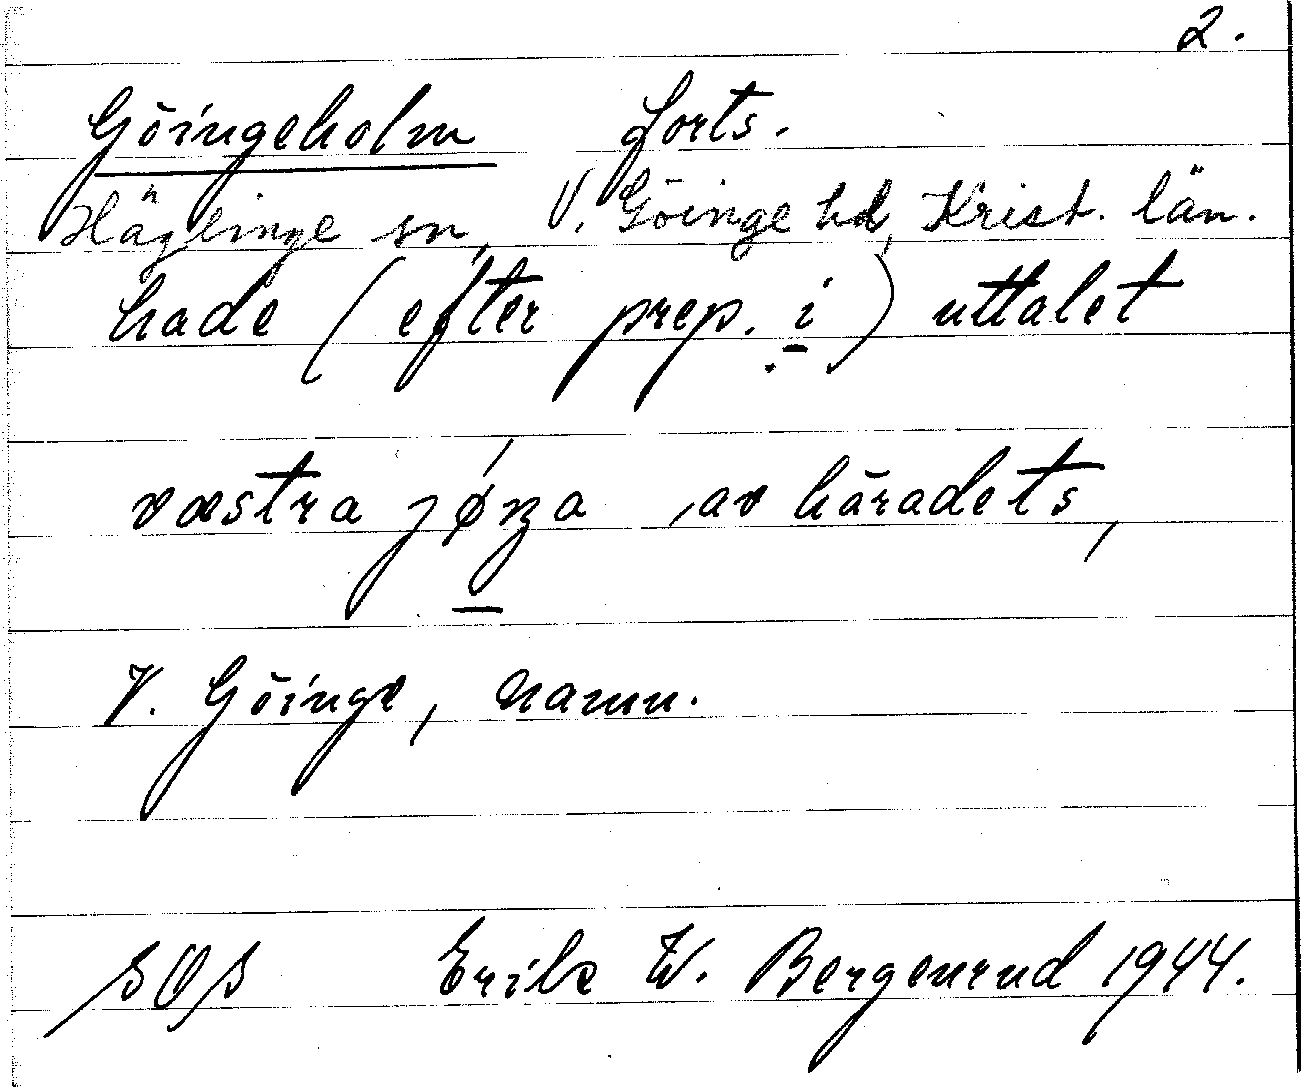 2.
Göingeholm forts.
Häglinge sn, V. Göinge hd, Krist. län.
hade (efter prep. i) uttalet
væstra jøŋa, av häradets,
V. Göinge, namn.
SOS Erik W. Bergenrud 1944.